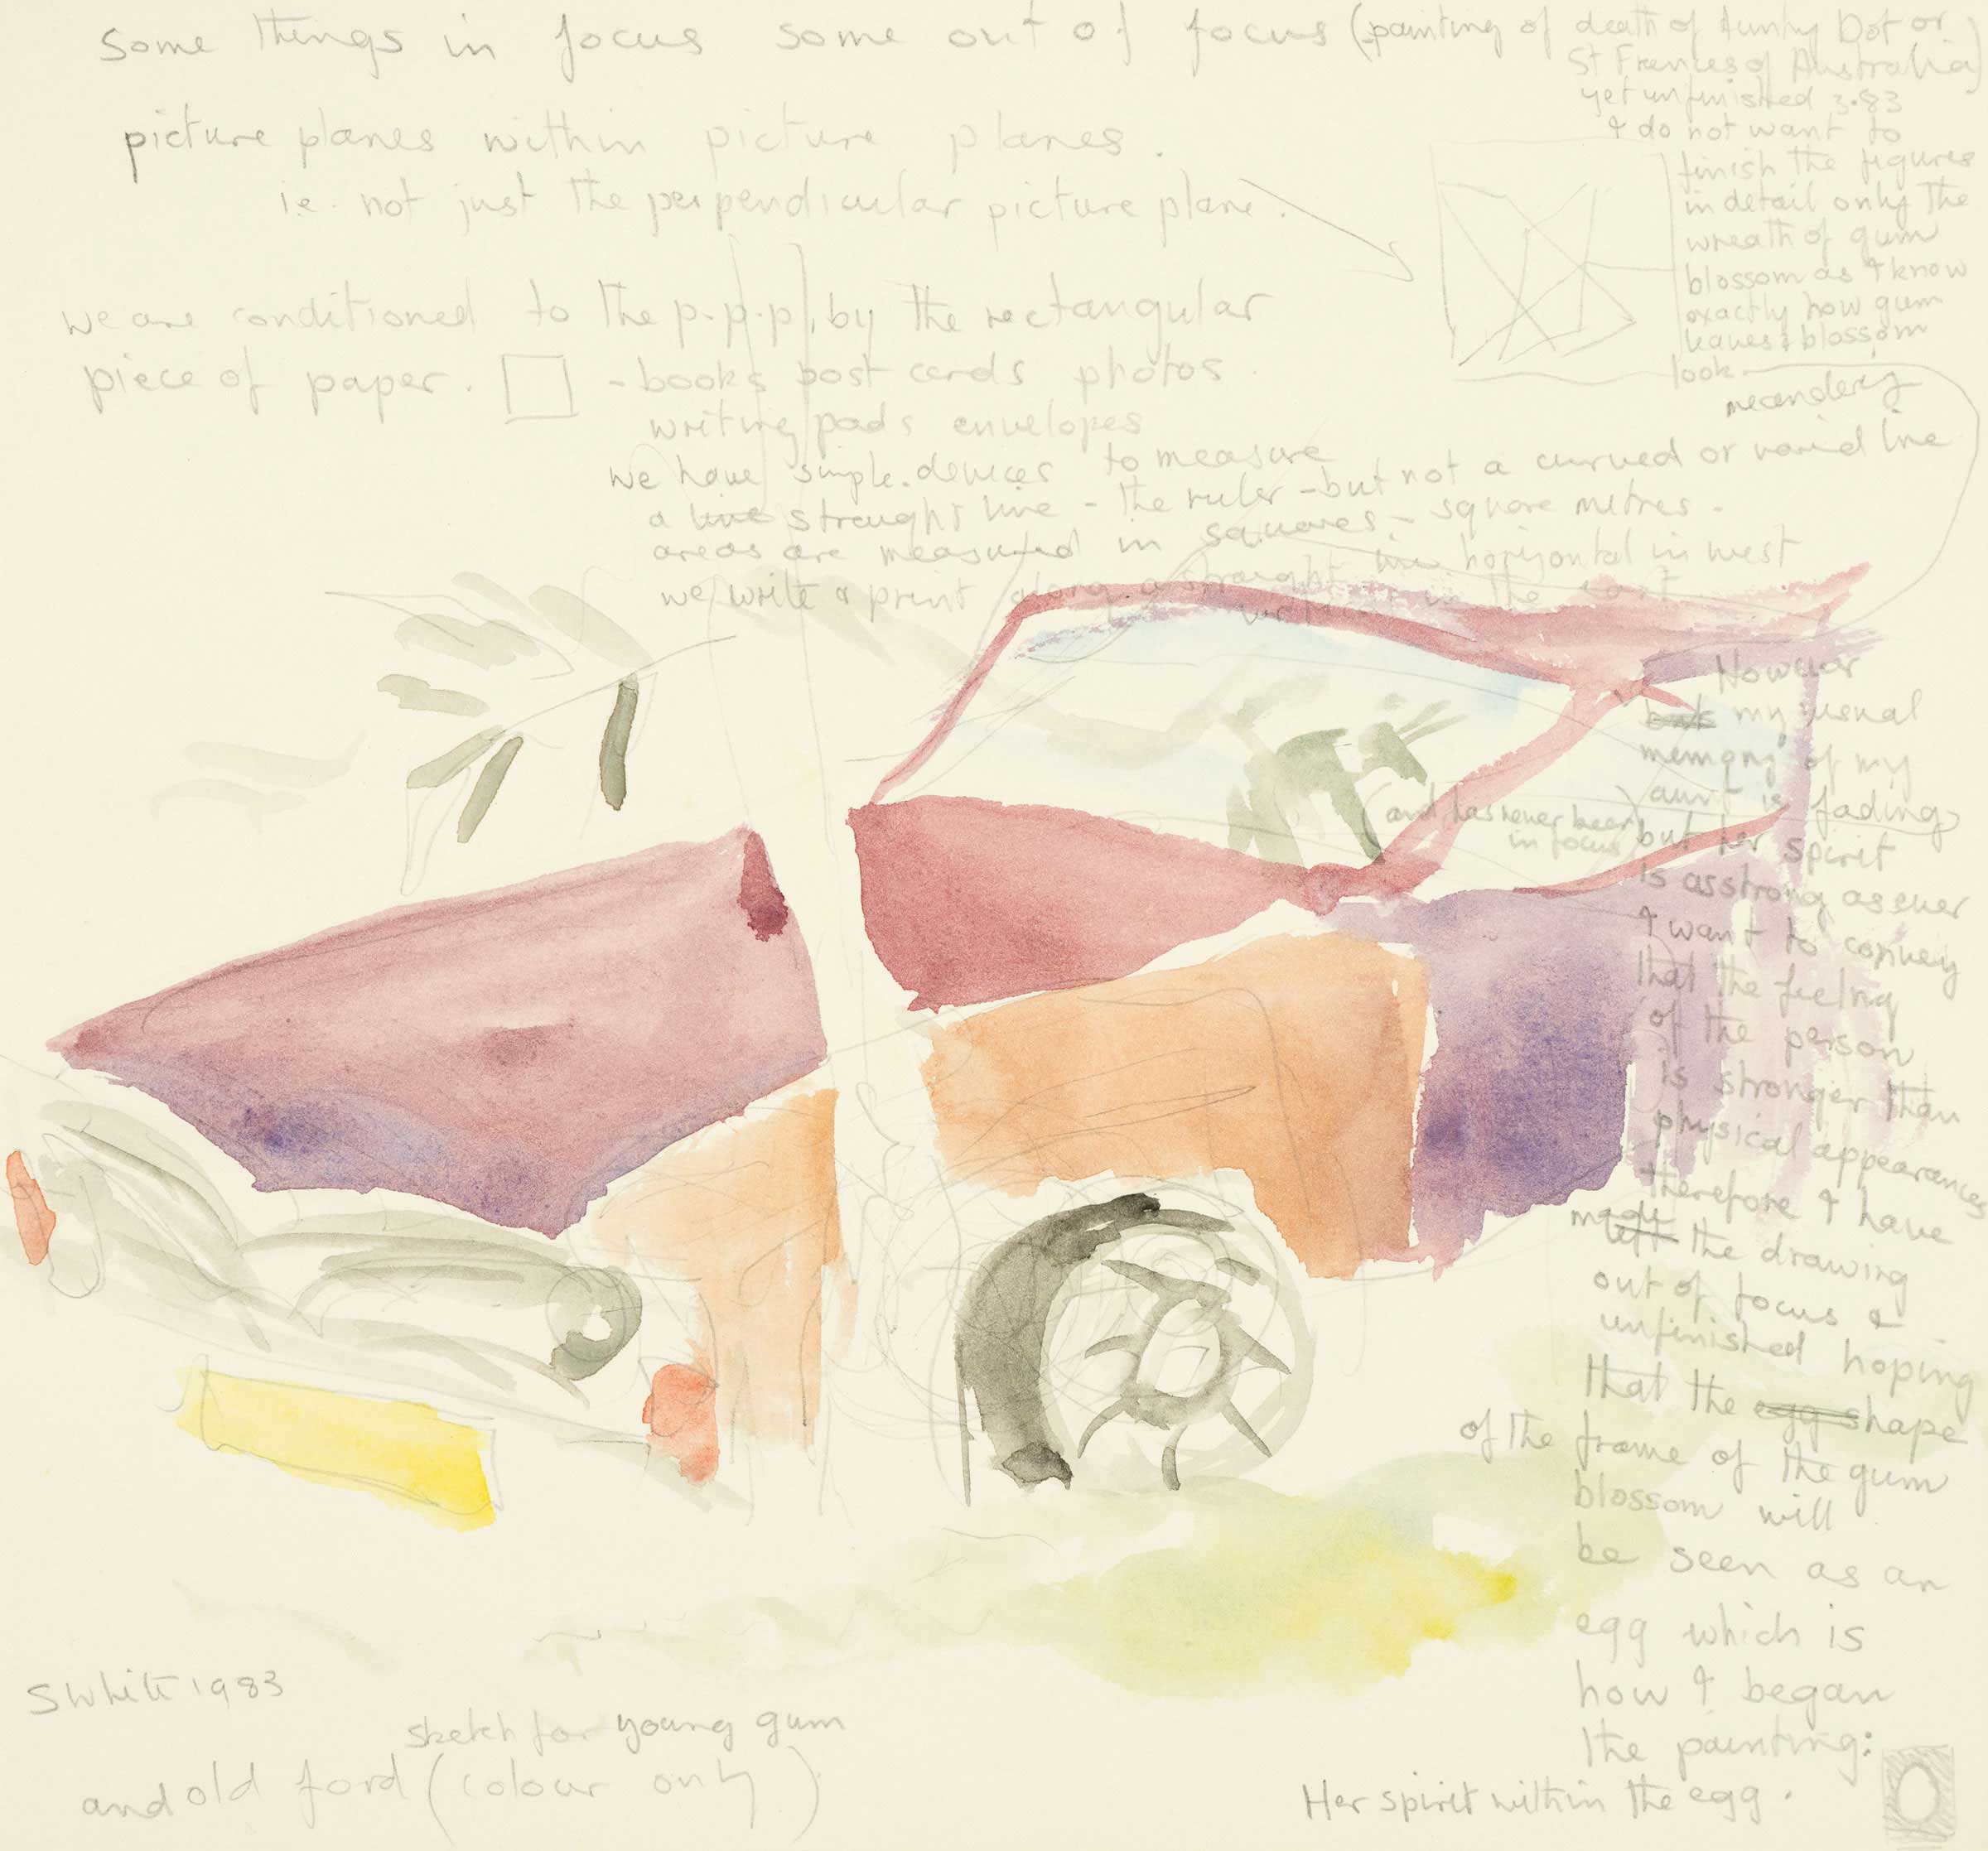 some things in focus some out of focus (painting of death of Aunty Dot or
St Frances of Australia)
yet unfinished 3.83
I do not want to
finish the figures
in detail only the
wreath of gum
blossom as I know
exactly how gum
leaves & blossom
look.
picture planes within picture planes.
i.e. not just the perpendicular picture plane.
we are conditioned to the p.p.p, by the rectangular
piece of paper.
- books post cards photos.
writing pads envelopes
we have simple devices to measure
a line straight line - the ruler - but not a curved or varied line
meandery
areas are measured in squares - square metres.
we write & print along a straight line horizontal in west
in the east
However
but my usual
memory of my
aunt is fading
(and has never been
in focus)
but her spirit
is as strong as ever
I want to convey
that the feeling
of the person
is stronger than
physical appearances
therefore I have
made
left the drawing
out of focus &
unfinished hoping
that the egg shape
of the frame of the gum
blossom will
be seen as an
egg which is
how I began
the painting:
Her spirit within the egg.
S White 1983
sketch for young gum
and old ford (colour only)